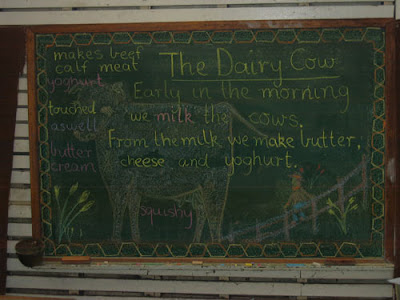 The Dairy Cow
Early in the morning
we milk the cows.
From the milk we make butter,
cheese and yoghurt.
makes beef
calf meat
yoghurt
touched
aswell
butter
cream
squishy